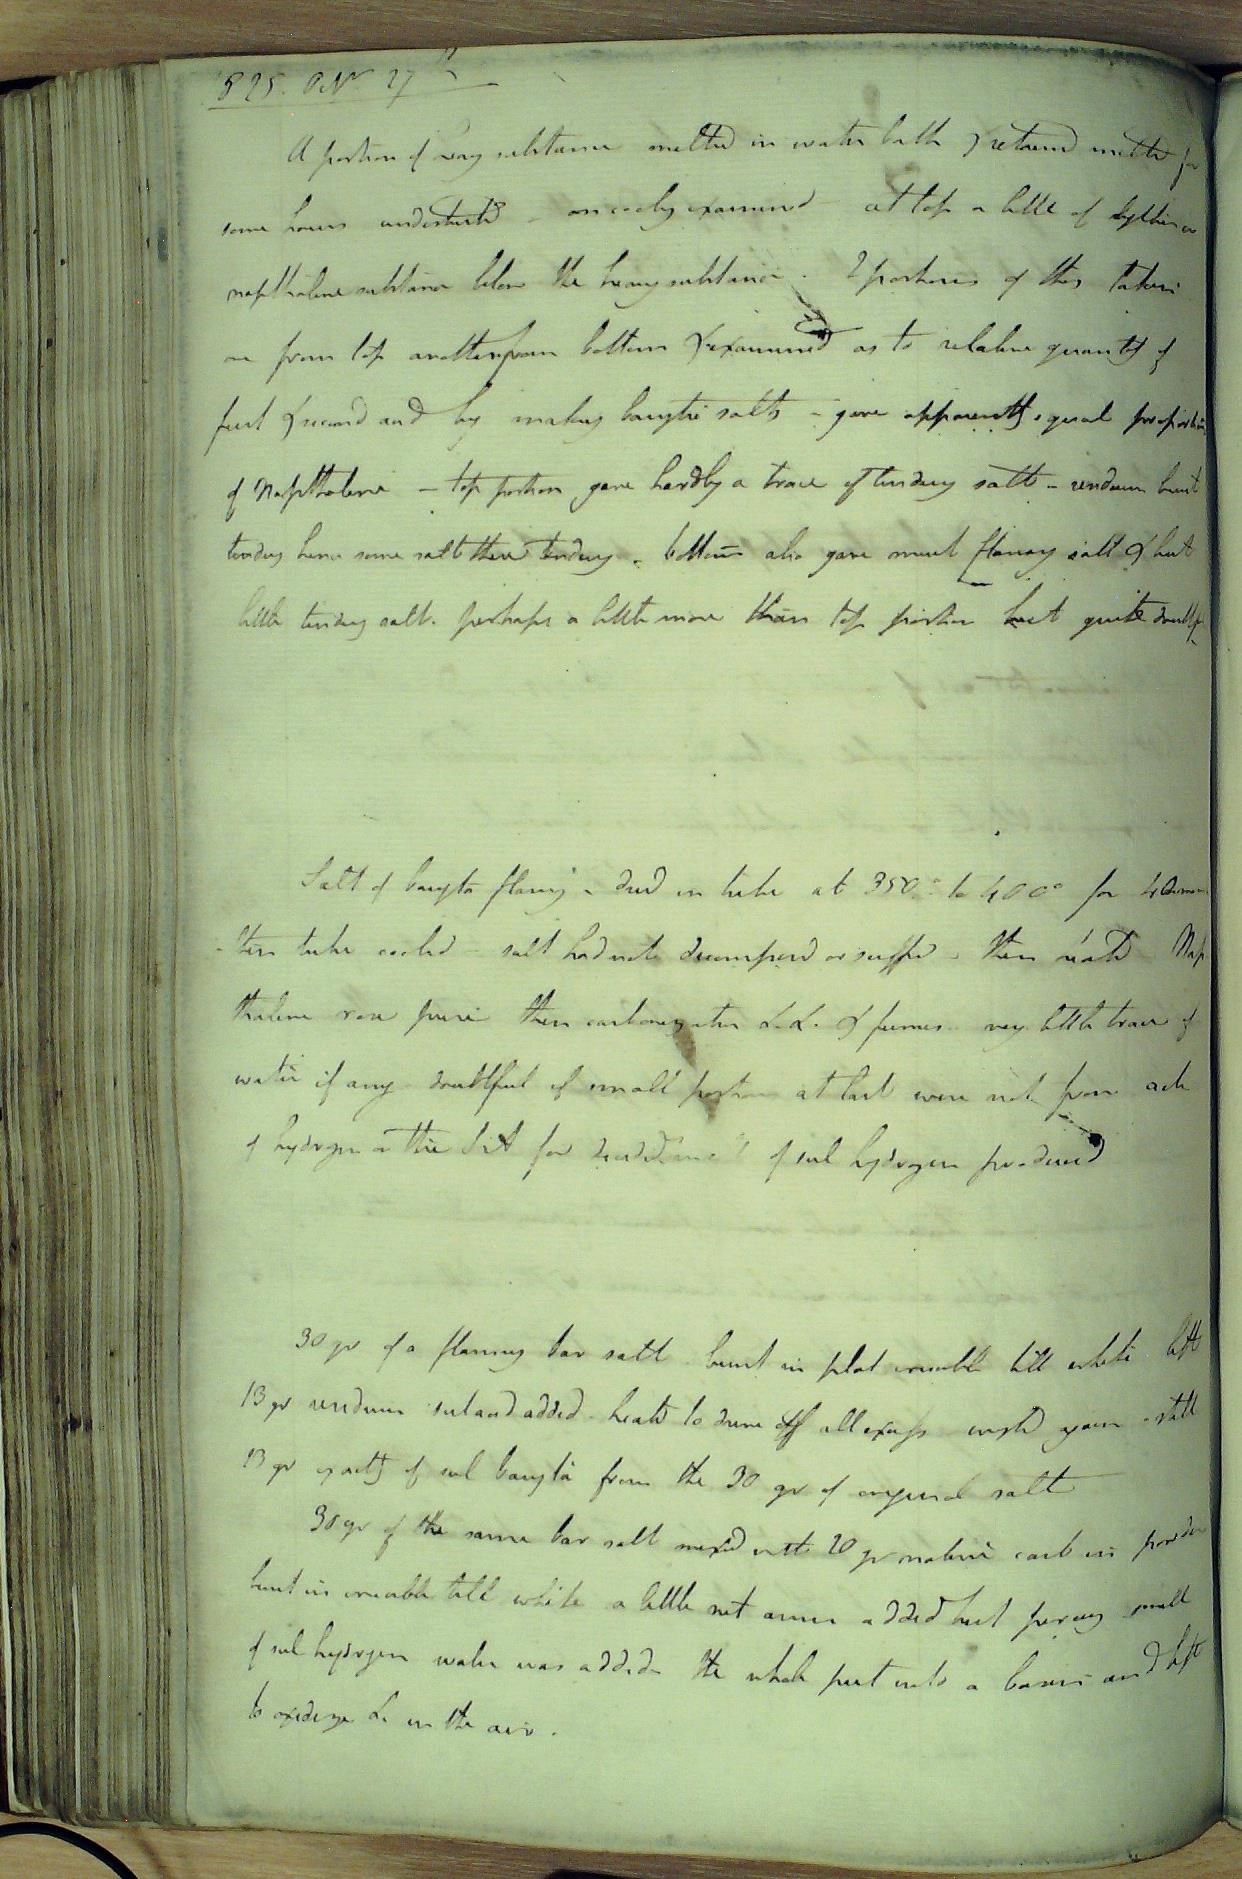 1825. Octr. 27th
A portion of waxy substance melted in water bath & retained melted for
some hours undisturbed - on cooling examined - at top a little of lighter
napthaline substance below the heavy substance. 2 portions of this taken
one from top another from bottom & examined as to relative quantity of
first & second acid by making barytic salts - gave apparently equal proportions
of Napthaline - top portion gave hardly a trace of tindery salt -
tindery hence some salt there tindery. bottom also gave much flamy salt & but
little tindery salt. perhaps a little more than top portion but quite doubtful
Salt of baryta flaming - dried in tube at 350° to 400° for
then tube cooled - salt had not decomposed or suffd - then heated Nap
thaline rose pure then carbonization &c. &c. & fumes - very little trace of
water if any - doubtful if small portion at last were not from
of hydrogen of sul hydrogen produced
30 gr of a flaming bar salt burnt in plat crucible till white left
13 gr residuum sul acid added - heated to drive off all excess weighd again - still
13 gr exactly of sul baryta from the 30 gr of original salt
30 gr of the same bar salt mixed with 20 gr native carb in powder
burnt in crucible till white a little nit amm added but perceiving smell
of sul hydrogen water was added - the whole put into a basin and left
to oxidize &c in the air.